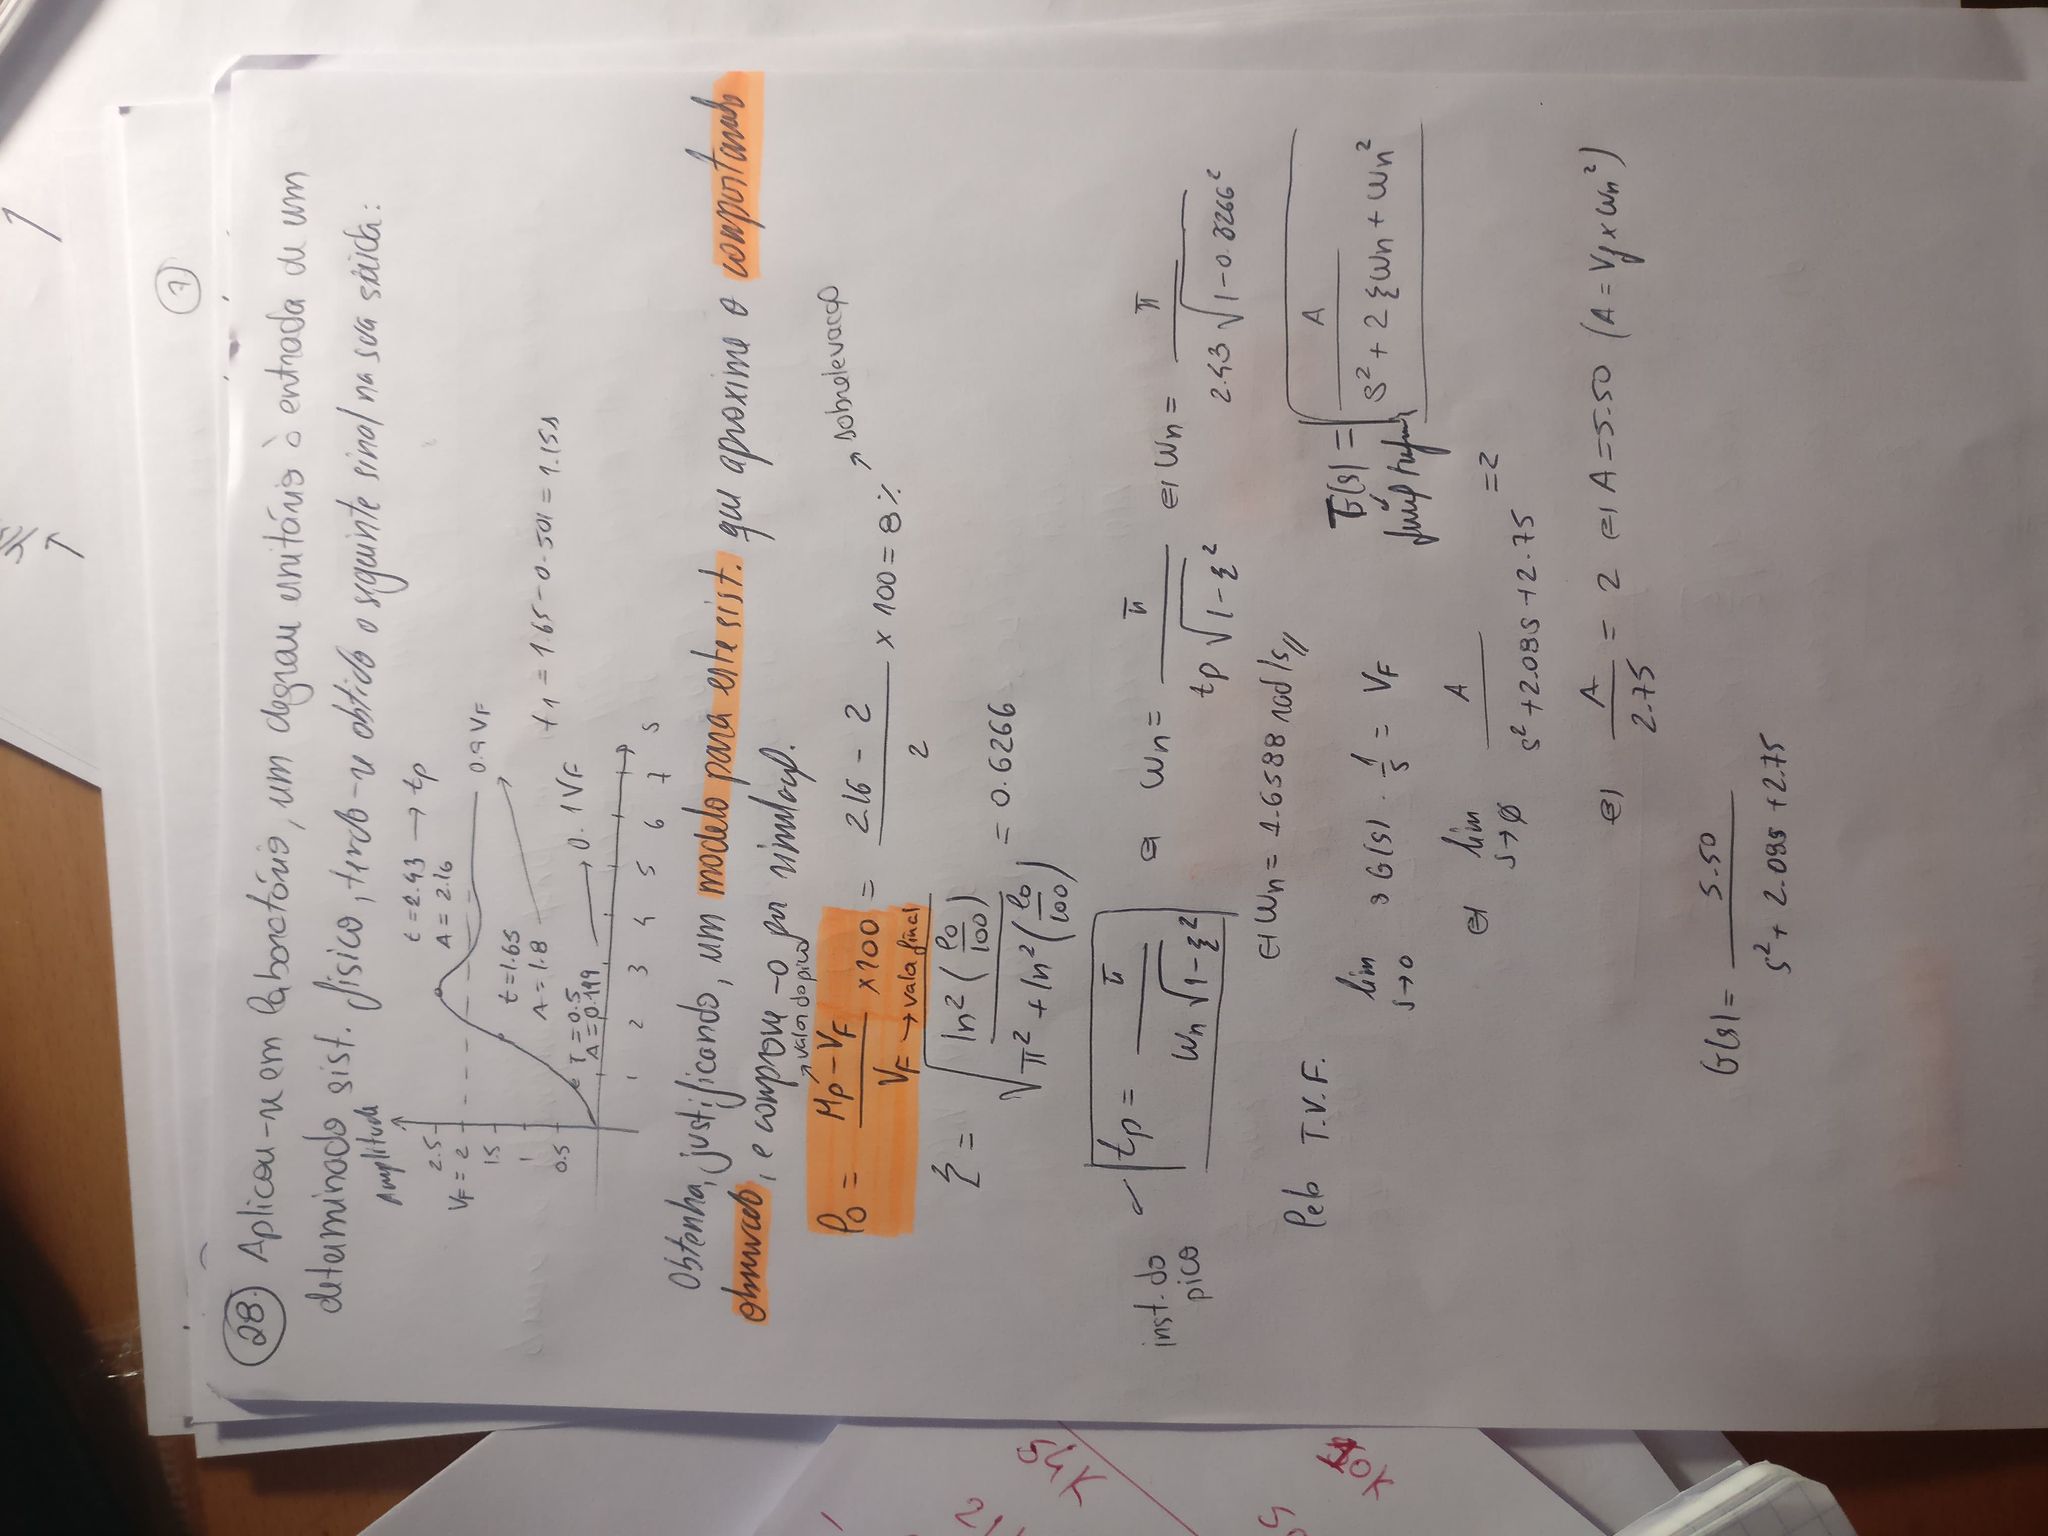 7
28. Aplicou-se em laboratório, um degrau unitário à entrada de um
determinado sist. físico, tendo-se obtido o seguinte sinal na sua saída:
Amplitude
t = 2.43 → tp
A = 2.16
2.5
VF = 2
1.5
1
0.5
0.9 VF
t = 1.65
A = 1.8
t1 = 1.65 - 0.501 = 1.15s
T = 0.5
A = 0.199
0.1 VF
1 2 3 4 5 6 7 s
Obtenha, justificando, um modelo para este sist. que aproxime o comportamento
observado, e comprove-o por simulaç.
Po = (Mp - VF) / VF × 100 = (2.16 - 2) / 2 × 100 = 8 %
valor do pico
valor final
sobrelevação
ξ = √(ln²(Po/100) / (π² + ln²(Po/100))) = 0.6266
inst. do pico
tp = π / (Wn √(1-ξ²)) ⇔ Wn = π / (tp √(1-ξ²)) ⇔ Wn = π / (2.43 √(1-0.6266²))
⇔ Wn = 1.6588 rad/s //
Pelo T.V.F.
lim s→0 s G(s) · 1/s = VF
G(s) = A / (s² + 2ξWn + Wn²)
⇔ lim s→0 A / (s² + 2.08s + 2.75) = 2
⇔ A / 2.75 = 2 ⇔ A = 5.50 (A = Vf × Wn²)
G(s) = 5.50 / (s² + 2.08s + 2.75)
54K
10K